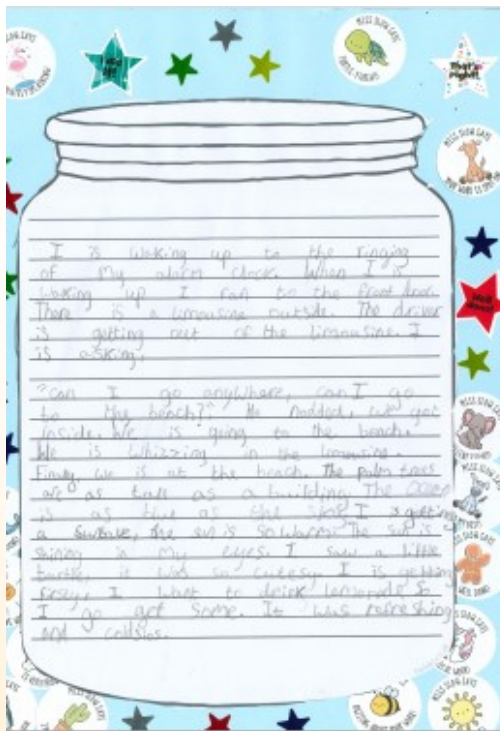 I is waking up to the ringing
of my alarm clock. When I is
waking up I ran to the front door.
There is a limousine outside. The driver
is getting out of the limousine. I
is asking,
"can I go anywhere, can I go
to the beach?" He nodded, we got
inside. We is going to the beach.
We is whizzing in the limousine.
Finaly we is at the beach. The palm trees
are as tall as a building. The ocean
is as blue as the sky. I is
a the sun is so warm. The sun is
shining in my eyes. I saw a little
turtle, it was so cutesy. I is getting
I want to drink lemonade so
I go get some. It was refreshing
and
That's right!
Well done!
MISS SLOW SAYS
MISS SLOW SAYS
MISS SLOW SAYS
WELL DONE!